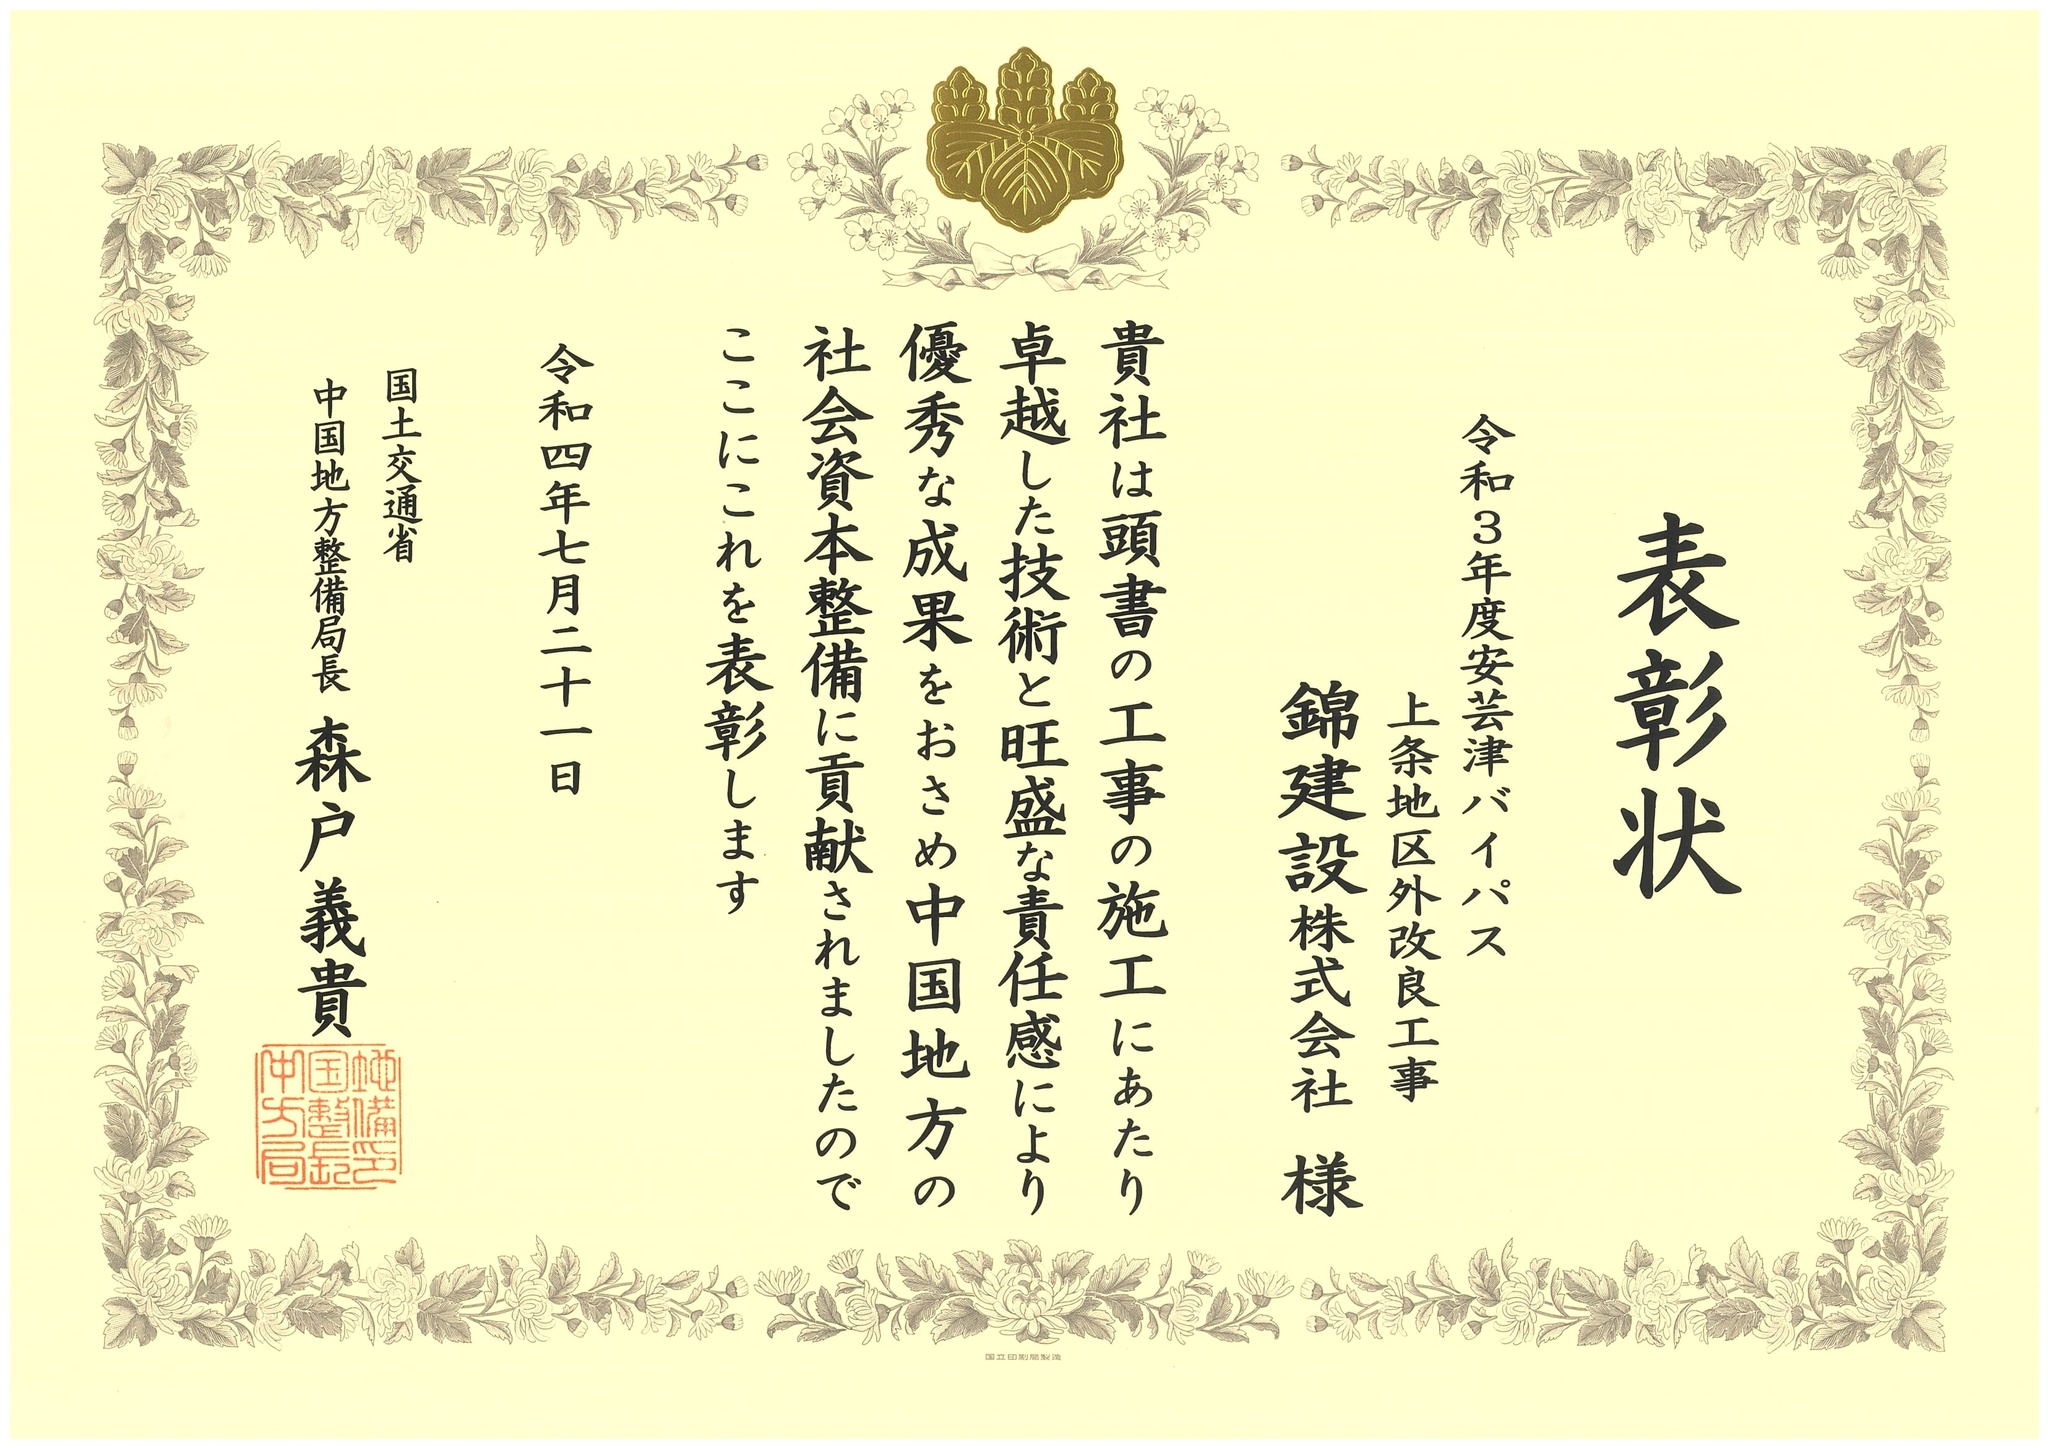 表彰状
令和３年度安芸津バイパス
上条地区外改良工事
錦建設株式会社 様
貴社は頭書の工事の施工にあたり
卓越した技術と旺盛な責任感により
優秀な成果をおさめ中国地方の
社会資本整備に貢献されましたので
ここにこれを表彰します
令和四年七月二十一日
国土交通省
中国地方整備局長 森戸義貴
中国地
方整備
局長印
国立印刷局製造